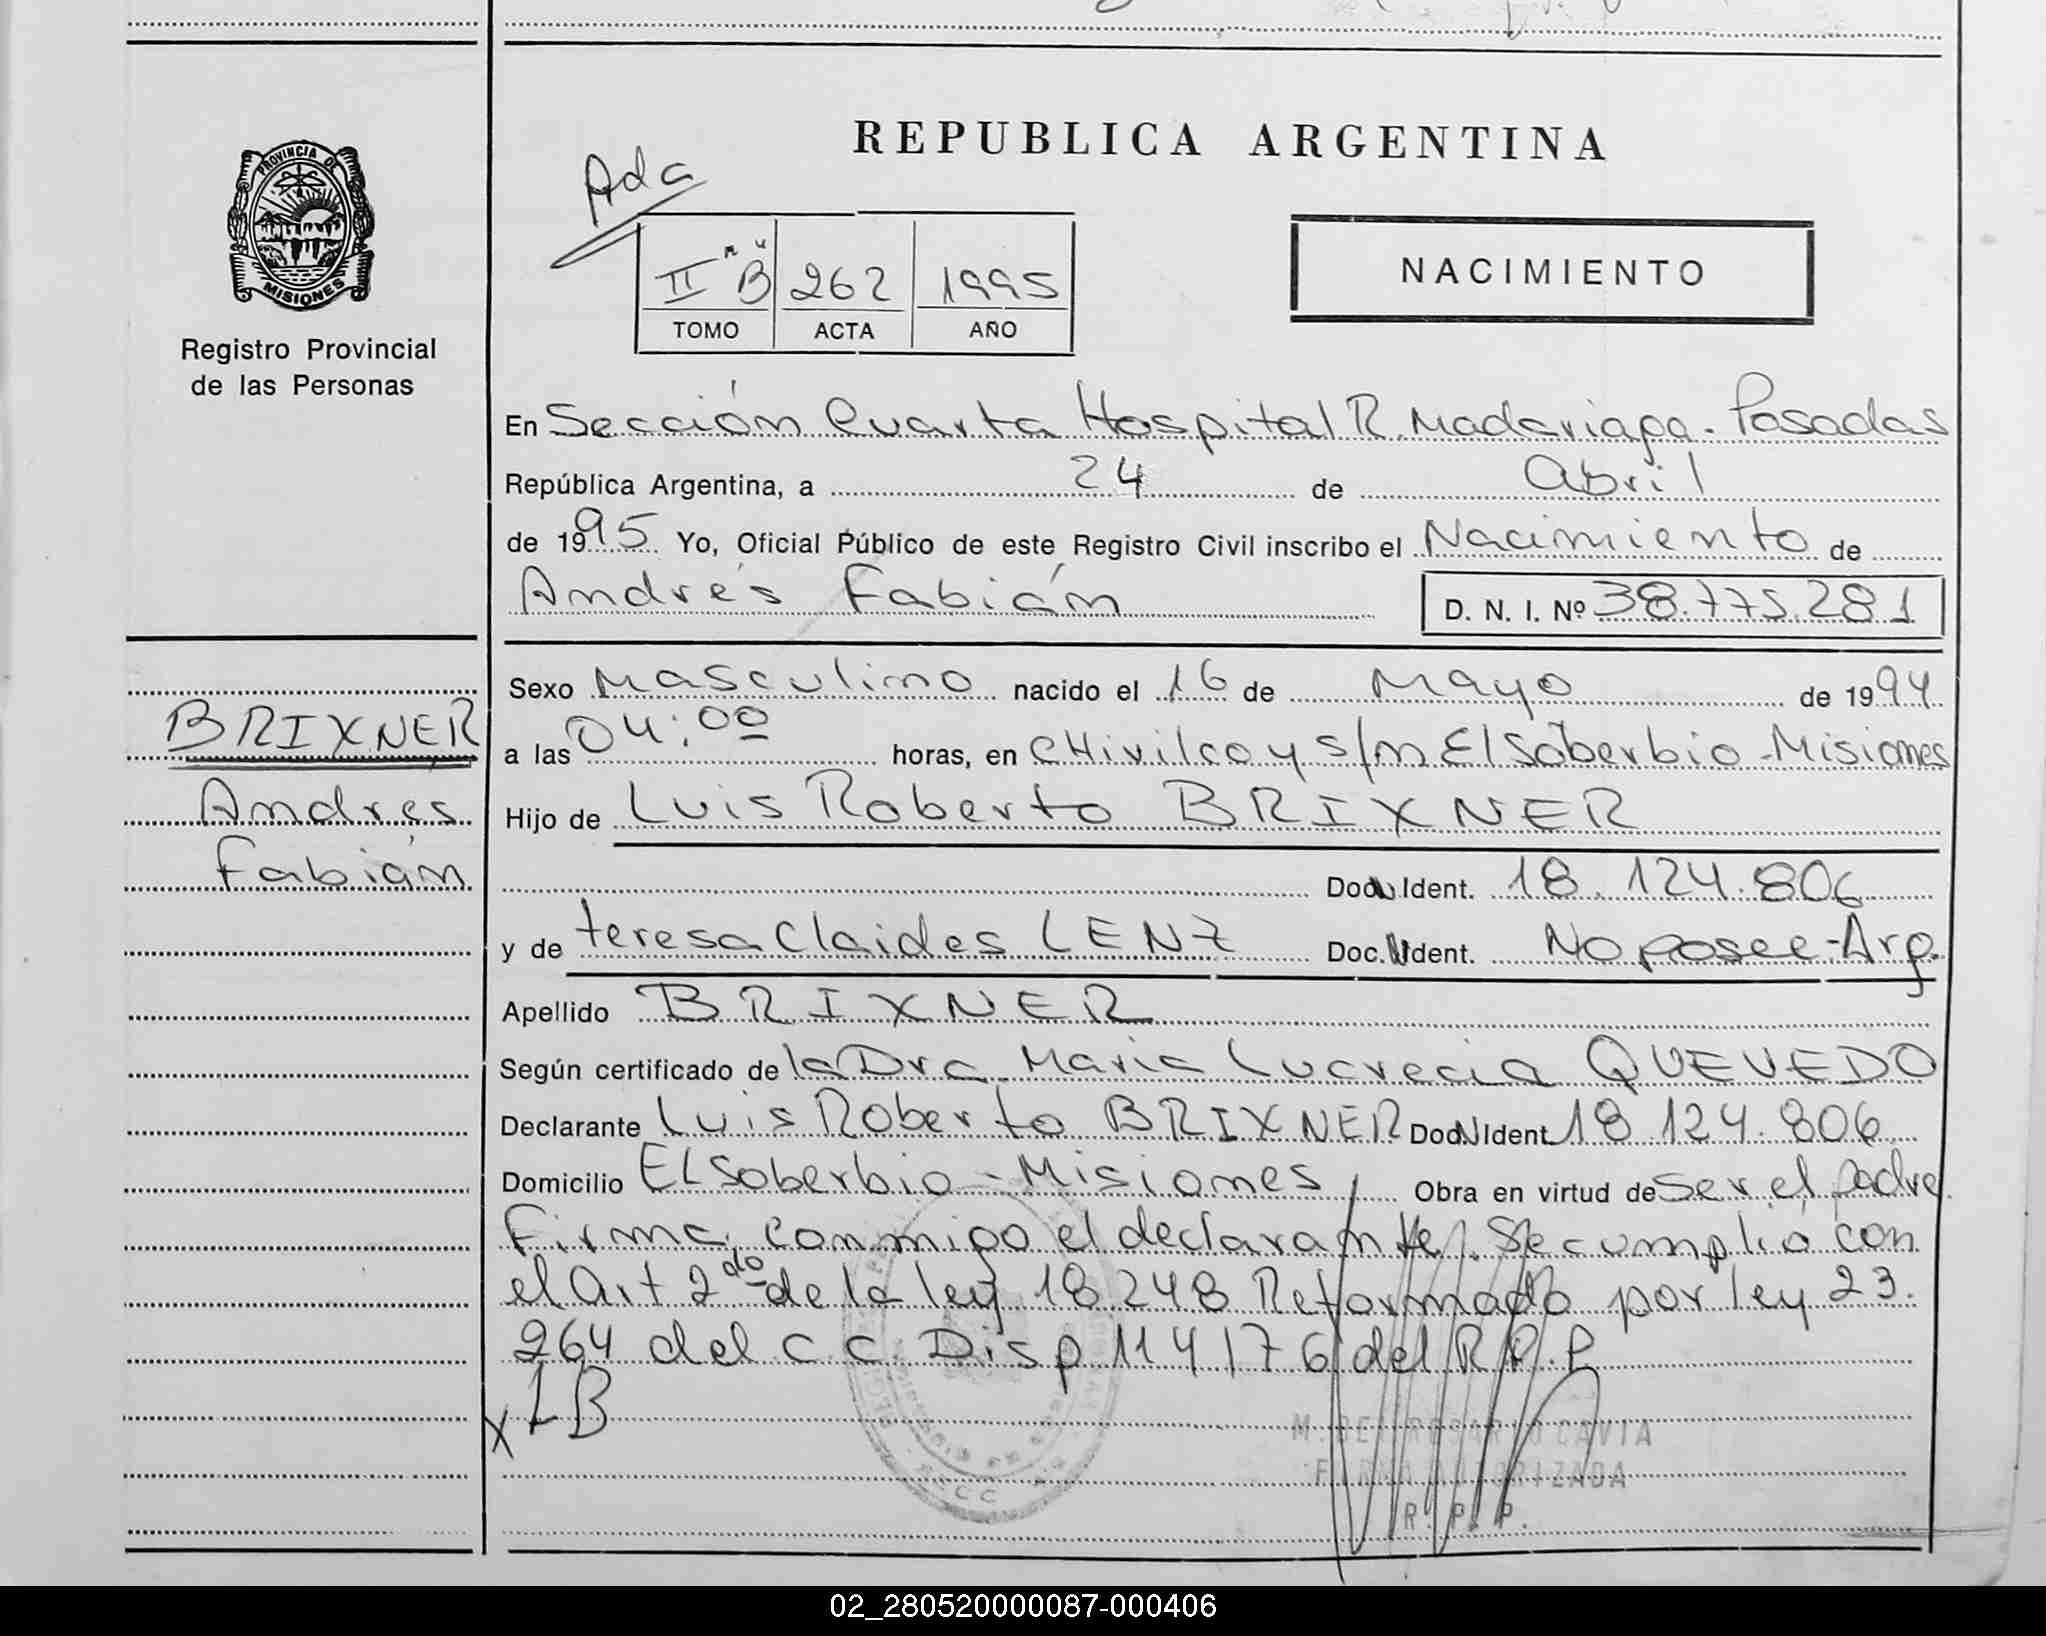 REPUBLICA ARGENTINA
PROVINCIA DE
MISIONES
Registro Provincial
de las Personas
Ada
II "B" 262 1995
TOMO ACTA AÑO
NACIMIENTO
En Sección Cuarta Hospital R. Madariaga. Posadas
República Argentina, a 24 de Abril
de 1995 Yo, Oficial Público de este Registro Civil inscribo el Nacimiento de
Andrés Fabián D. N. I. Nº 38.775.281
Sexo Masculino nacido el 16 de Mayo de 1994
BRIXNER
a las 04:00 horas, en CHivilcoy s/n El Soberbio - Misiones
Andrés
Hijo de Luis Roberto BRIXNER
Fabián
Doc. Ident. 18.124.806
y de teresa Claides LENZ Doc. Ident. No posee - Arg.
Apellido BRIXNER
Según certificado de la Dra. Maria Lucrecia QUEVEDO
Declarante Luis Roberto BRIXNER Doc. Ident. 18.124.806
Domicilio EL Soberbio - Misiones Obra en virtud de Ser el padre
Firma conmigo el declarante. Se cumplió con
el Art 2do de la ley 18.248 Reformado por ley 23.
264 del C.C. Disp 114/76 del R.P.P
x LB
M. DEL ROSARIO CAVIA
FIRMA AUTORIZADA
R. P. P.
02_280520000087-000406